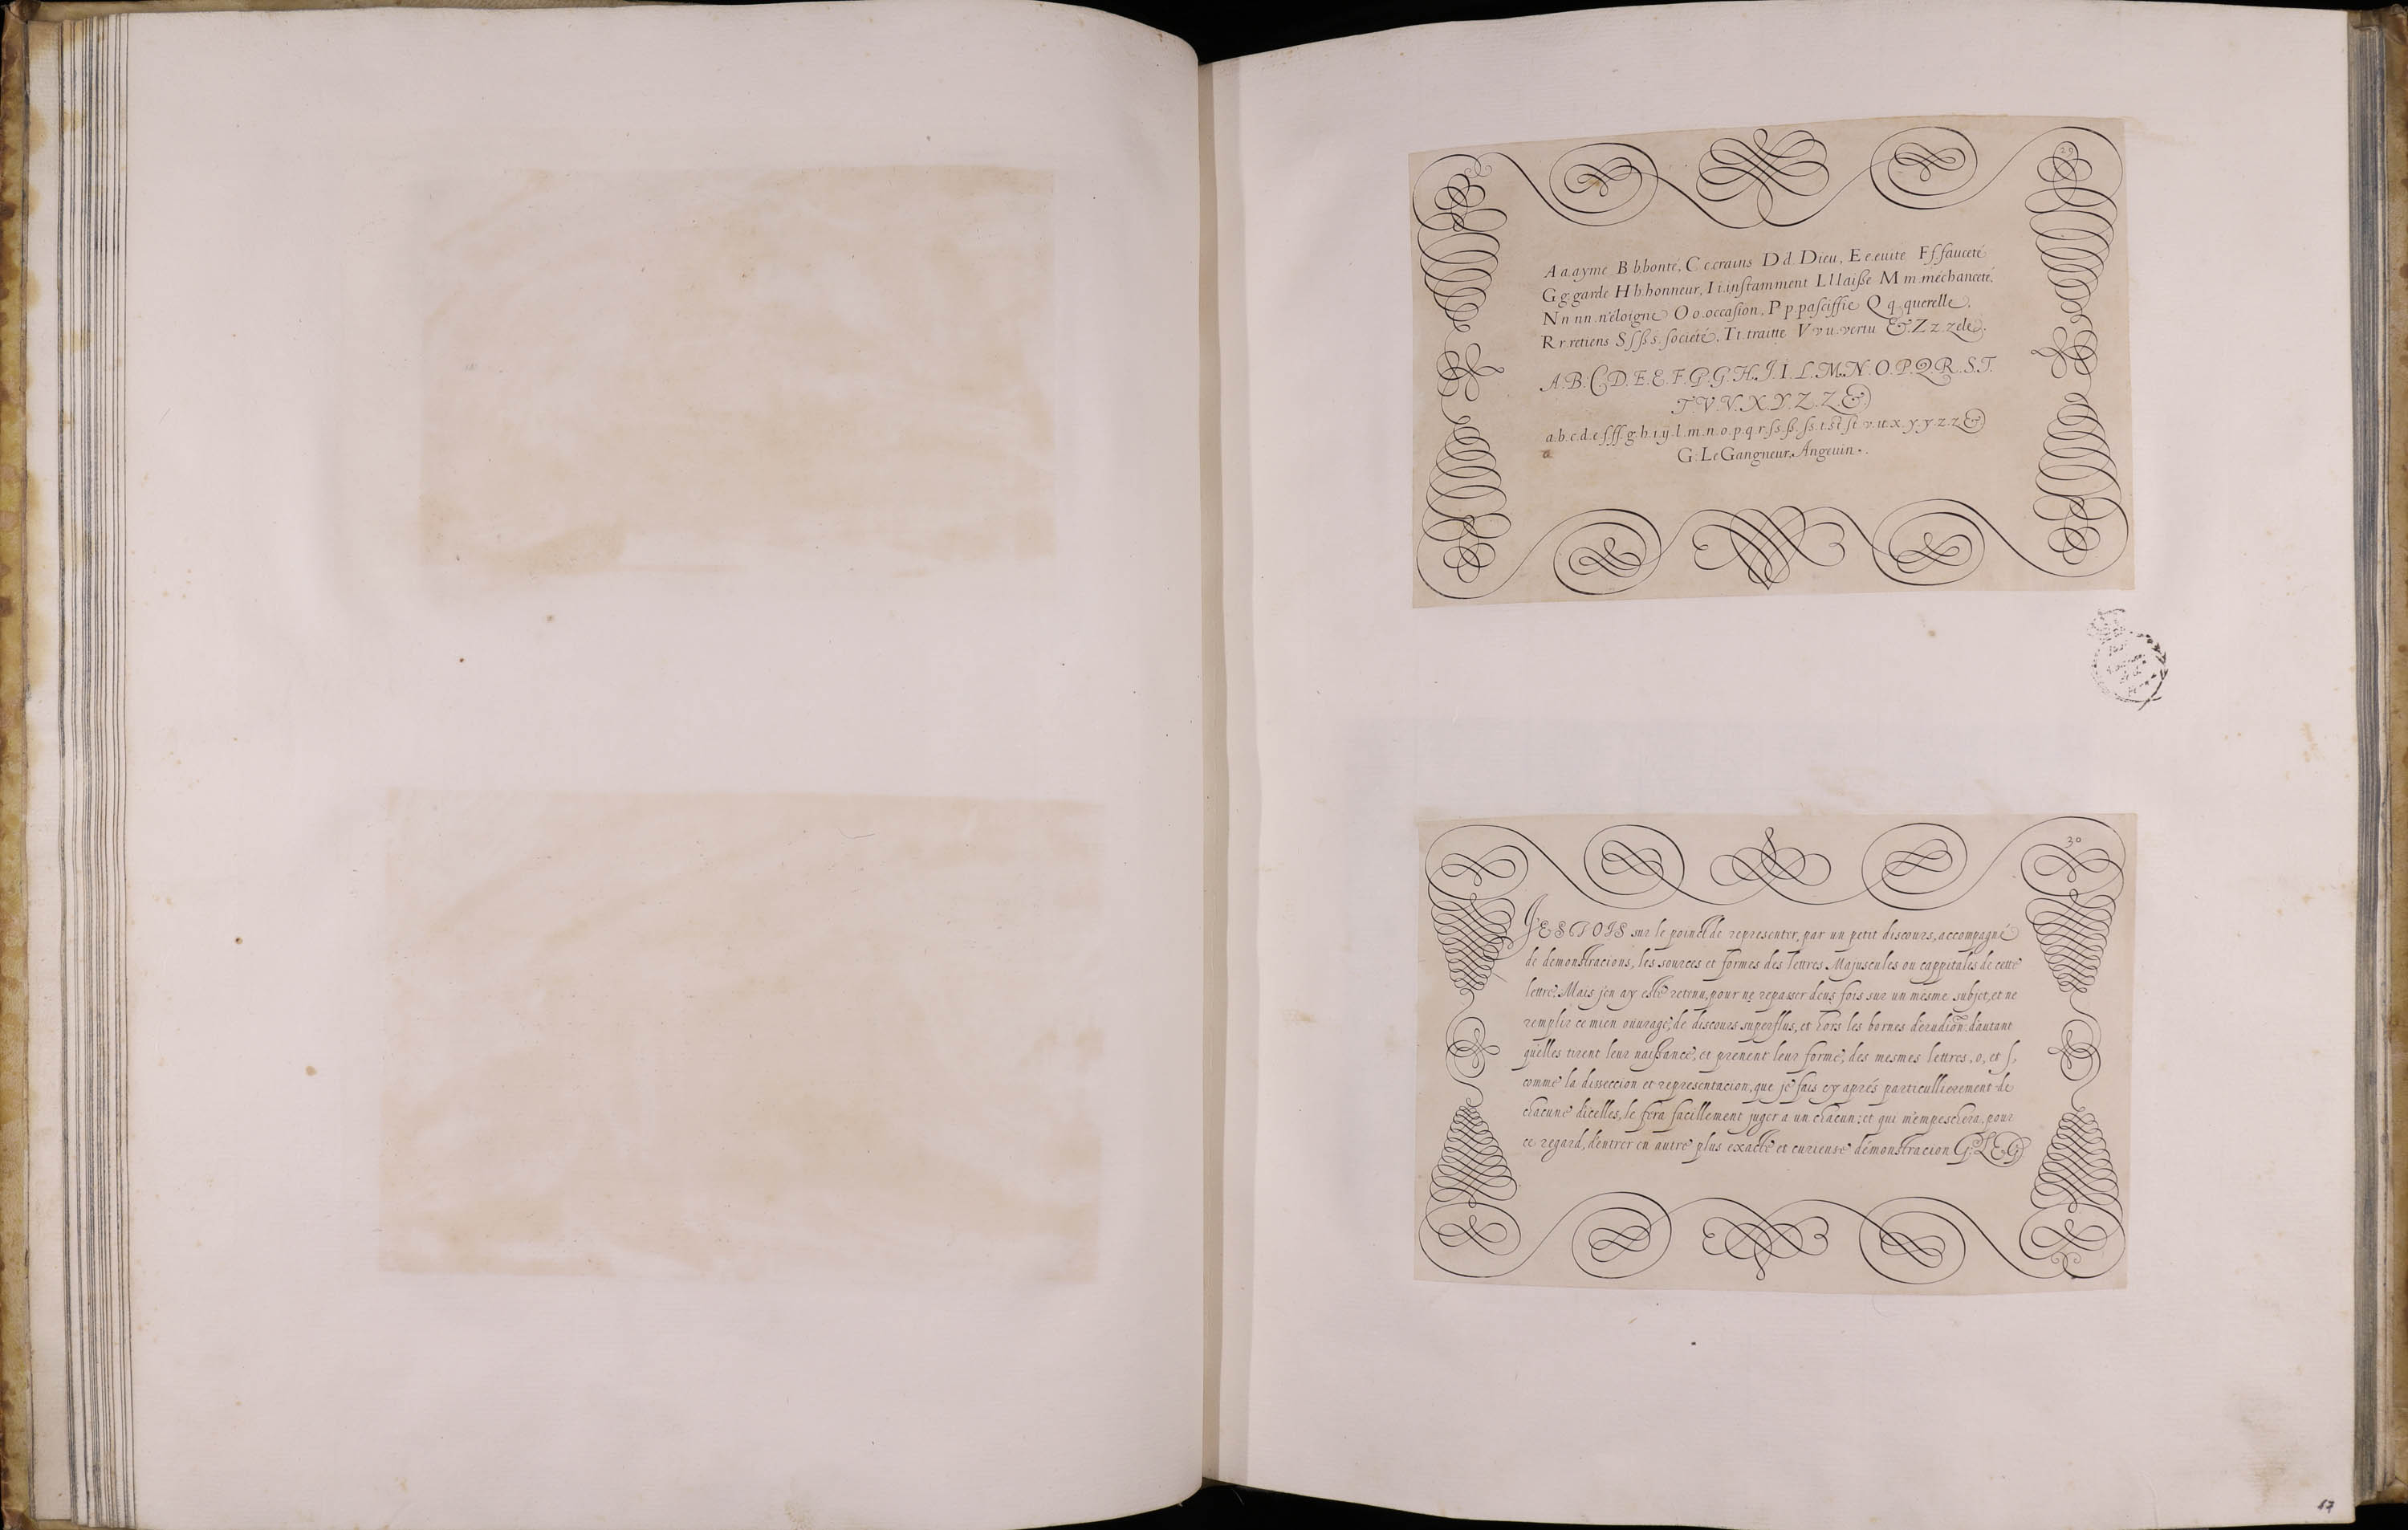 29
A a.ayme B b.bonté, C c.crains D d. Dieu, E e.euite F f.fauceté
G g.garde H h.honneur, I i.inſtamment L l laiße M m.méchanceté,
N n nn.n'éloigne O o.occaſion, P p.paſciffie Q q.querelle,
R r.retiens S ſ ß s.ſociété, T t.traitte V v u.vertu &. Z z.zele.
A.B.C.D.E.E.F.G.G.H.J.I.L.M.N.O.P.Q.R.S.T.
T.V.V.X.Y.Z.Z.&
a.b.c.d.e.f.ff.g.h.i.ij.l.m.n.o.p.q.r.ſs.ß.ſs.t.st.ſt.v.u.x.y.y.z.z.&
a
G. Le Gangneur. Angeuin.
30
J'ESTOIS sur le poinct de representer, par un petit discours, accompagné
de demonstracions, les sources et formes des lettres Majuscules ou cappitales de cette
lettre? Mais j'en ay esté retenu, pour ne repasser deus fois sur un mesme subjet, et ne
remplir ce mien ouurage, de discours superflus, et hors les bornes d'erudiõn: d'autant
qu'elles tirent leur naißance, et prenent leur forme, des mesmes lettres, o, et ſ,
comme la dissection et representacion, que je fais cy aprés particullierement de
chacune d'icelles, le fera facillement juger a un chacun: et qui m'empeschera, pour
ce regard, d'entrer en autre plus exacte et curieuse démonstracion G. L E G
17